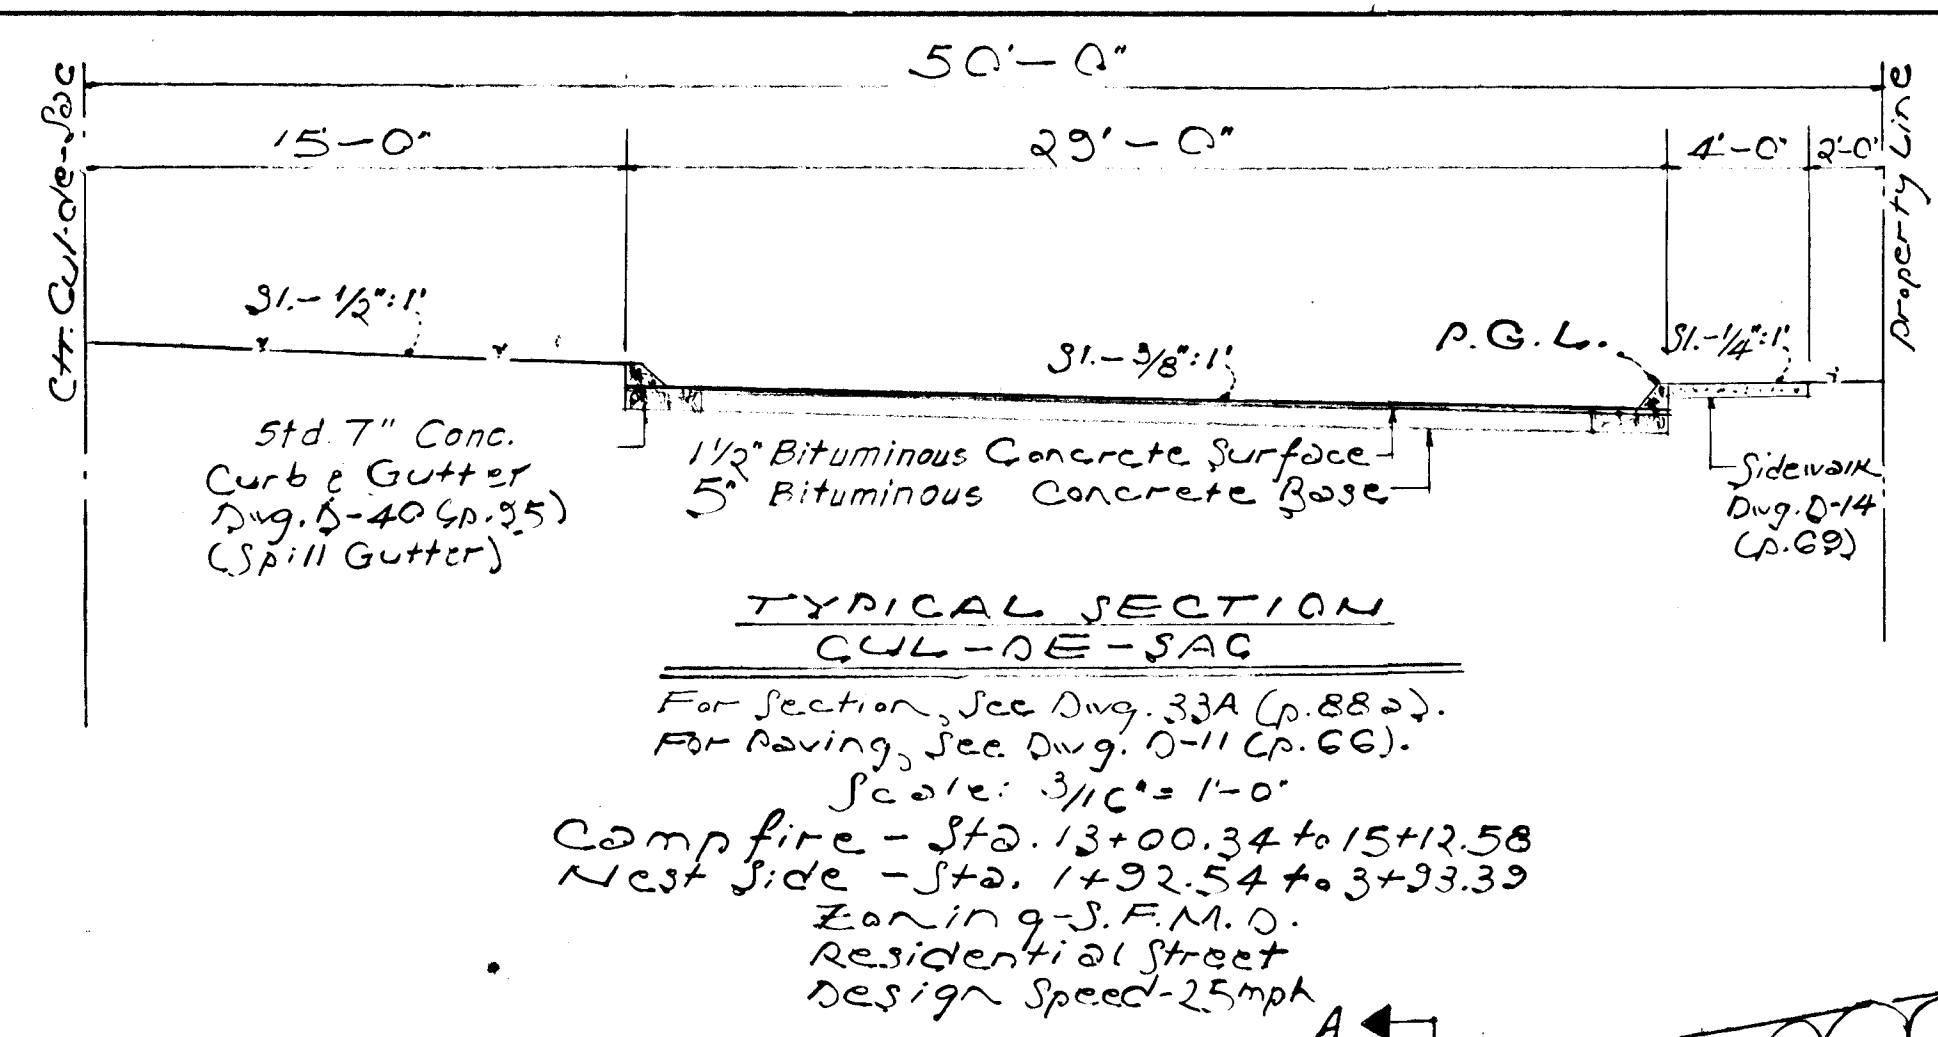 50'-0"
15-0"
29'-0"
4'-0"
2'-0"
Ctr. Cul-de-Sac
Property Line
Sl.-1/2":1'
Sl.-3/8":1'
P.G.L.
Sl.-1/4":1'
Std. 7" Conc.
Curb & Gutter
Dwg. D-40 (p.95)
(Spill Gutter)
1 1/2" Bituminous Concrete Surface
5" Bituminous Concrete Base
Sidewalk
Dwg. D-14
(p.69)
TYPICAL SECTION
CUL-DE-SAC
For Section, See Dwg. 33A (p.88a).
For Paving, See Dwg. D-11 (p.66).
Scale: 3/16"= 1'-0"
Campfire - Sta. 13+00.34 to 15+12.58
Nest Side - Sta. 1+92.54 to 3+93.39
Zoning-S.F.M.D.
Residential Street
Design Speed-25mph
A